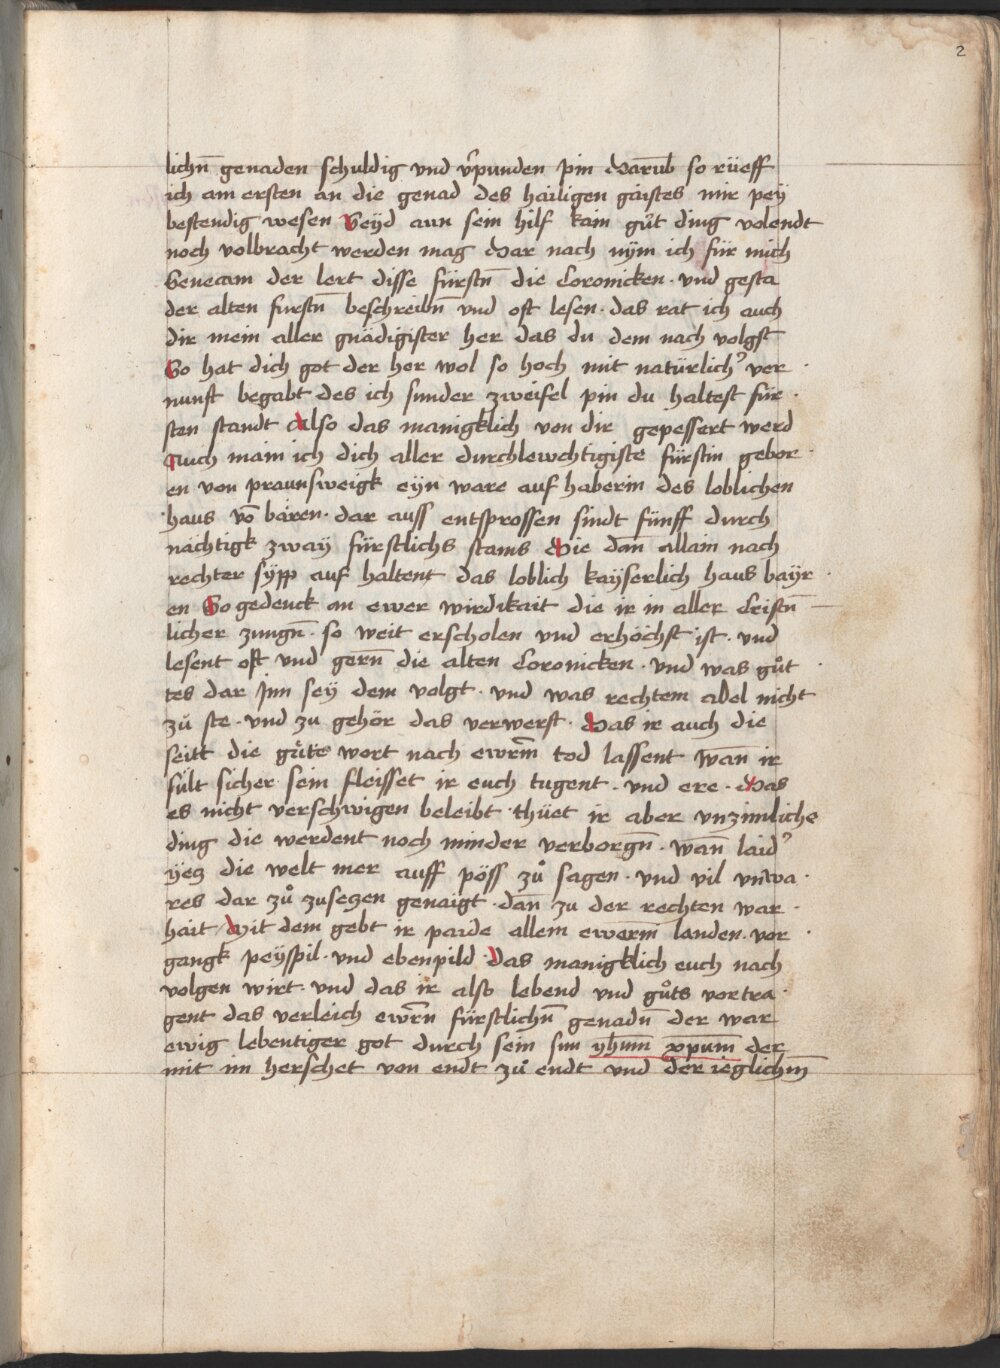 2
lichn̄ genaden schuldig vnd v̾punden pin Darūb so rüeff
ich am ersten an die genad des hailigen gaistes mir pey
bestendig wesen Seyd aun sein hilf kain gůt ding volendt
noch volbracht werden mag Dar nach nÿm ich für mich
Senecam der lert disse fürstn̄ die Coronicken · vnd gesta
der alten furstn̄ beschreibn̄ vnd oft lesen · das rat ich auch
dir mein aller gnädigister her das du dem nach volgst
So hat dich got der her wol so hoch mit natürlich̾ ver
nunft begabt des ich sunder zweifel pin du haltest für ·
sten standt Also das manigklich von dir gepessert werd
Auch main ich dich aller durchlewchtigiste fürstin gebor ·
en von praunsweigk eyn ware auf haberin des loblichen
haus vō bären · dar auss entsprossen sindt fünff durch
nächtigk zwaÿ fürstlichs stams Die dan̄ allain nach
rechter sÿpp auf haltent das loblich kaÿserlich haus baÿr ·
en So gedenck an ewer wirdikait die ir in aller cristn̄
licher zungn̄ · so weit erscholen vnd erhöchst ist · vnd
lesent oft vnd gern̄ die alten Coronicken · vnd was gůt ·
tes dar Jnn seÿ dem volgt · vnd was rechtem adel nicht
zů ste · vnd zu gehör das verwerft · Das ir auch die
seitt die gůte wort nach ewrm̄ tod lassent wan̄ ir
sült sicher sein fleisset ir euch tugent · vnd ere · Das
es nicht verschwigen beleibt · thüet ir aber vnzimliche
ding die werdent noch minder verborgn̄ · wan̄ laid̾
ÿetz die welt mer auff pöss zů sagen · vnd vil vnwa ·
res dar zů zusetzen genaigt · dan̄ zu der rechten war ·
hait Mit dem gebt ir paide allem ewerm̄ landen · vor ·
gangk peÿspil · vnd ebenpild · Das manigklich euch nach
volgen wirt · vnd das ir also lebend vnd gůts vortra ·
gent das verleich ewrn̄ fürstlichn̄ genadn̄ der war
ewig lebentiger got durch sein sun yhum̄ xpum̄ der
mit im herschet von endt zů endt vnd der ieglichm̄